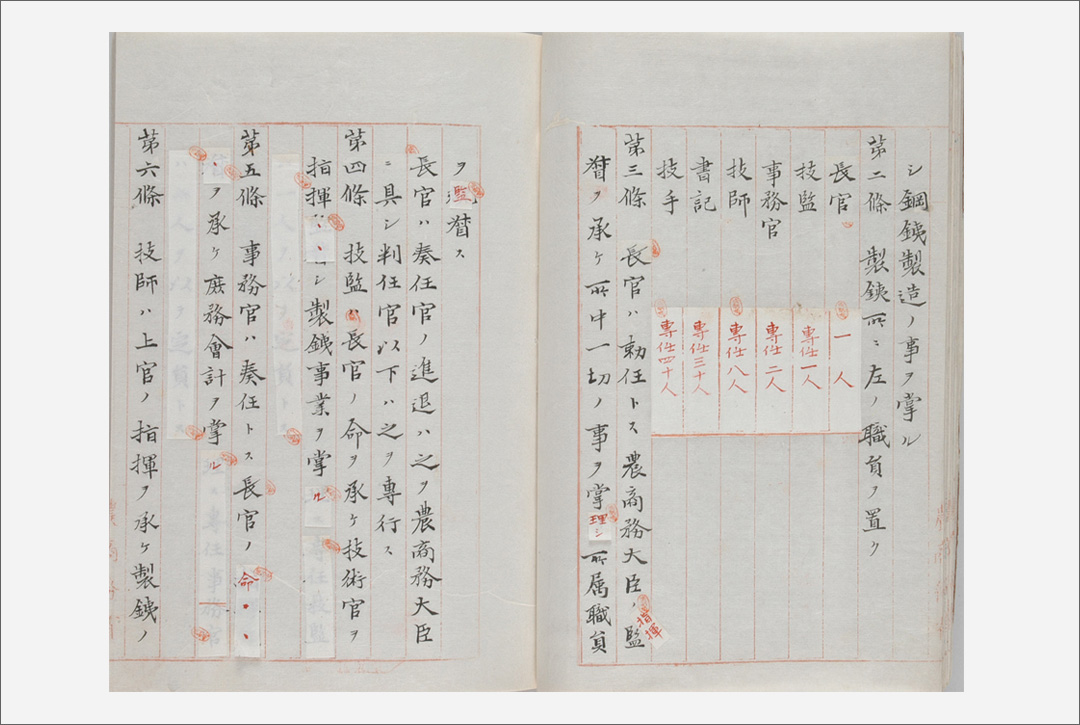 シ鋼銕製造ノ事ヲ掌ル
第二條　製銕所ニ左ノ職員ヲ置ク
長官　一人
技監　専任一人
事務官　専任二人
技師　専任八人
書記　専任三十人
技手　専任四十人
第三條　長官ハ勅任トス農商務大臣ノ指揮監
督ヲ承ケ所中一切ノ事ヲ掌理シ所属職員
ヲ監督ス
長官ハ奏任官ノ進退ハ之ヲ農商務大臣
ニ具シ判任官以下ハ之ヲ専行ス
第四條　技監ハ長官ノ命ヲ承ケ技術官ヲ
指揮シ製銕事業ヲ掌ル
第五條　事務官ハ奏任トス長官ノ命
ヲ承ケ庶務會計ヲ掌ル
第六條　技師ハ上官ノ指揮ヲ承ケ製銕ノ